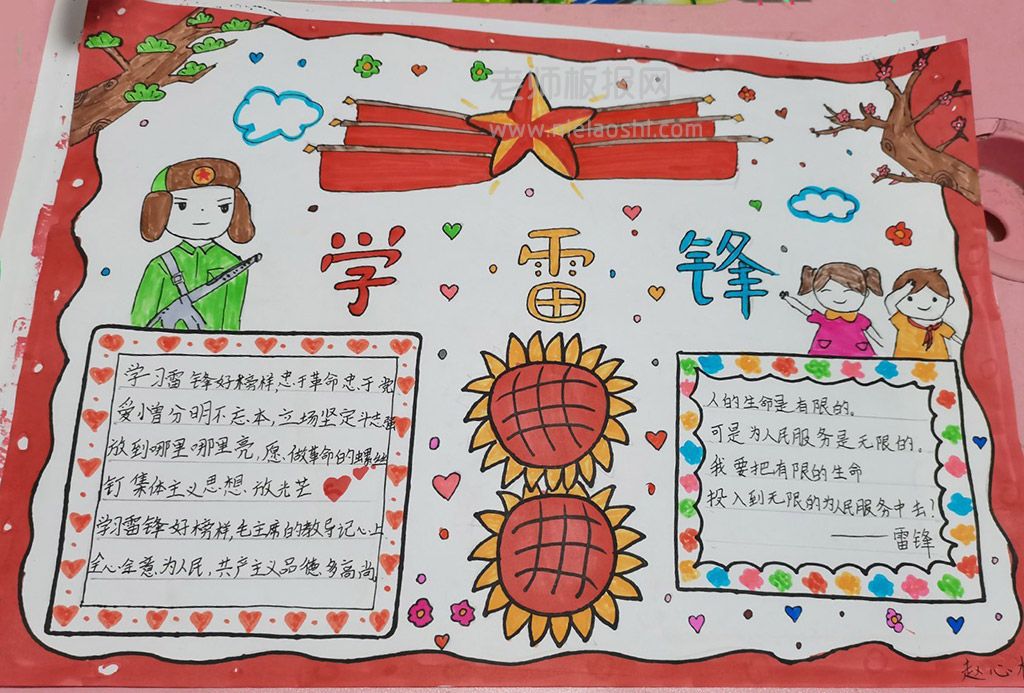 老师板报网
学雷锋
学习雷锋好榜样,忠于革命忠于党
爱小曾分明不忘本,立场坚定斗志强
放到哪里哪里亮,愿做革命的螺丝
钉 集体主义思想 放光芒
学习雷锋好榜样,毛主席的教导记心上
全心全意为人民,共产主义品德多高尚
人的生命是有限的。
可是为人民服务是无限的。
我要把有限的生命
投入到无限的为人民服务中去!
——雷锋
赵心